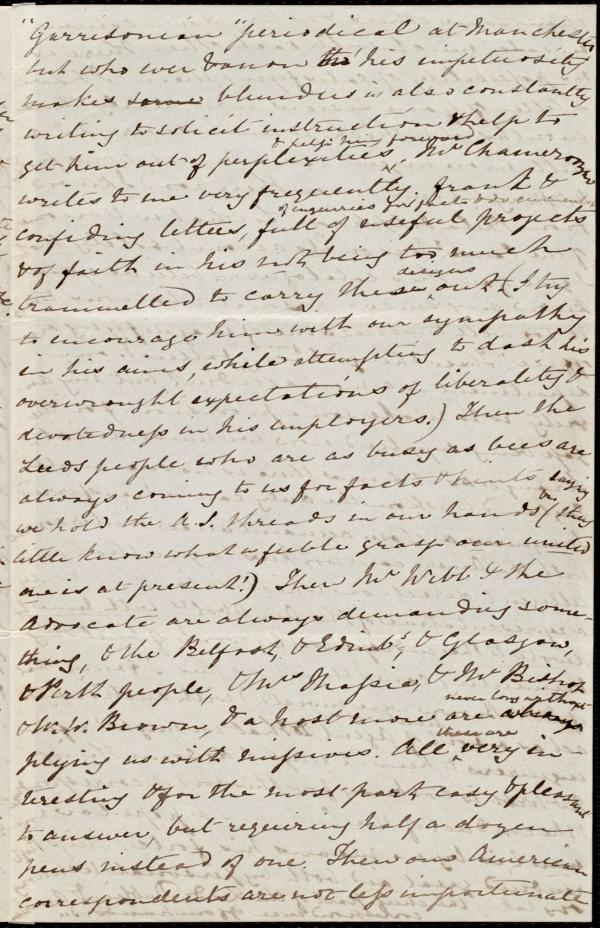 "Garrisonian" periodical at Manchester
but who ever & anon tho' his impetuosity
makes some blunders is also constantly
writing to solicit instruction & help to
& help him forward
get him out of perplexities. Mr Chamerovzow
writes to me very frequently, frank &
of inquiries for facts & documents
confiding letters, full of useful projects
& of faith in his not being too much
designs
trammelled to carry these out (I try
to encourage him with our sympathy
in his aims, while attempting to dash his
overwrought expectations of liberality &
devotedness in his employers.) Then the
Leeds people who are as busy as bees are
always coming to us for facts & hints saying
we hold the A.S. threads in our hands (they
little know what a feeble grasp our united
one is at present!) Then Mr Webb & the
Advocate are always demanding some-
thing, & the Belfast, & Edinb', & Glasgow,
& Perth people, & Mrs Massie, & Mr Bishop
never long without
& W. W. Brown, & a host more are always
these are
plying us with missives. All very in-
teresting & for the most part easy & pleasant
to answer, but requiring half a dozen
pens instead of one. Then our American
correspondents are not less importunate